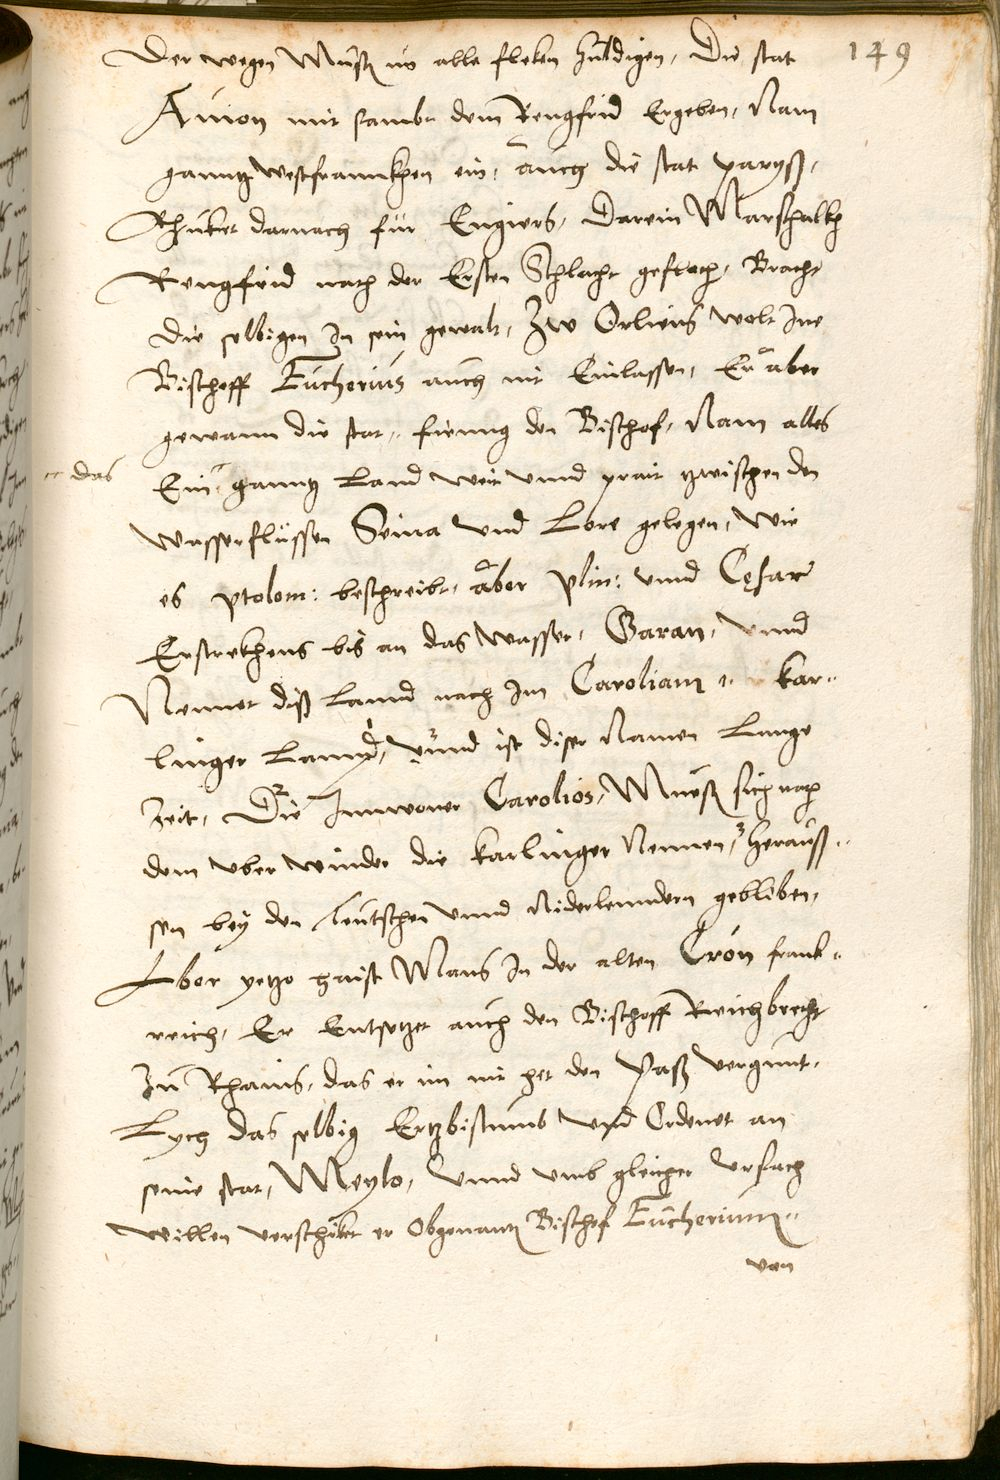 149
Der wegen Muest im alle fleken huldigen, Die stat
Auion mit sambt dem Rengfrid Ergeben, Nam
ganntz Westfrannkhen ein, auch die stat paryß,
Rhuket darnach für Engiers, Darein Marschalkh
Rengfrid nach der Ersten Schlacht gefloch, Bracht
die selbigen In sein gewalt, Zw Orliens wolt Ine
Bischoff Eucherius auch nit Einlassen, Er aber
gewann die stat, fieng den Bischof, Nam alles
das
Ein, ganntz Land weit vnnd prait zwischen den
Wasserflüssen Seina vnd Lore gelegen, Wie
es ptolom: beschreibt, aber plin: vnnd Cęsar
Erstrekhens bis an das Wasser, Garan, vnnd
Nennet diß Lannd nach Im Caroliam kar-
linger Lannd, vnnd ist diser Namen Lange
Zeit, Die Innwoner Carolios, Muest sich nach
dem vberwinder die karlinger Nennen, herauß-
sen bey den Teutschen vnnd Niderlenndern gebliben,
Aber yetzo haist Mans In der alten Cron frank-
reich, Er Entsetzet auch den Bischoff Reichbrecht
Zu Rhaims, das er im nit het den Paß vergunt,
Lych das selbig Ertzbistumb vnd Ordenet an
seine stat, Meylo, vnnd vmb gleicher vrsach
willen verschiket er Obgenantn Bischof Eucherium
von